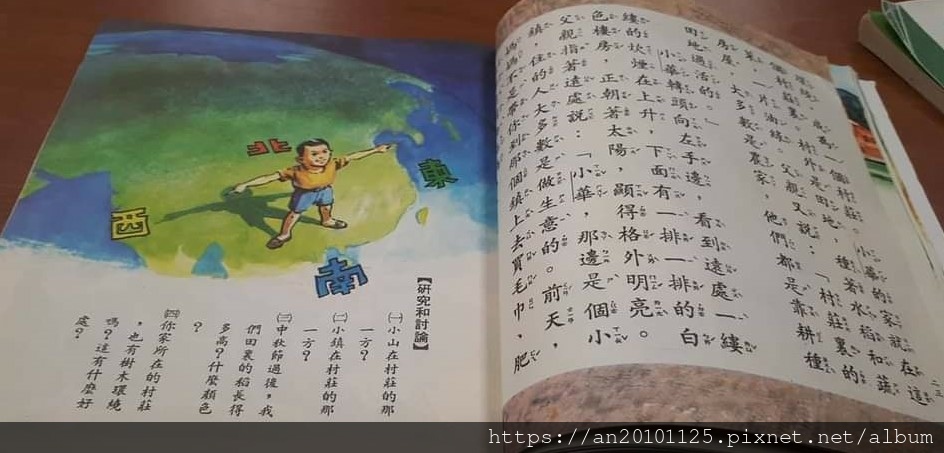 一個村莊。小華的家就在這
個村莊裏。村外是田地,種著水稻和蔬
菜,一片油綠。父親又說:「村莊裏的
房屋,大多數是農家,他們都是靠耕種
田地過活的。」
小華轉頭向左手邊,看到遠處一縷
縷的炊煙在上升,下面有一排一排的白
色樓房,正朝著太陽,顯得格外明亮。
父親指著遠處說:「小華,那邊是個小
鎮,住的人大多數是做生意的。前天,
媽媽不是帶你到那個鎮上去買毛巾、肥
北
東
西
南
【研究和討論】
㈠小山在村莊的那
一方?
㈡小鎮在村莊的那
一方?
㈢中秋節過後,我
們田裏的稻長得
多高?什麼顏色
?
㈣你家所在的村莊
,也有樹木環繞
嗎?這有什麼好
處?
https://an20101125.pixnet.net/album